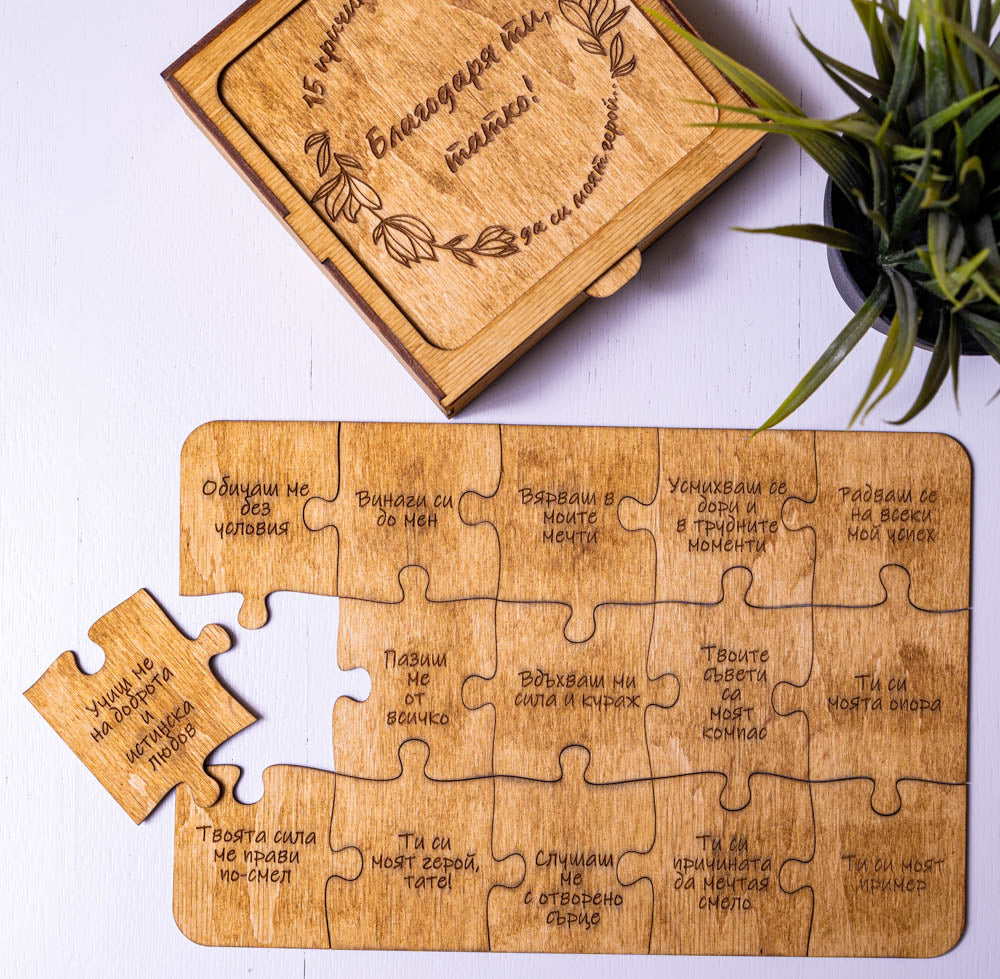 15 причини
Благодаря ти,
татко!
да си моят герой...
Обичаш ме
без
условия
Винаги си
до мен
Вярваш в
моите
мечти
Усмихваш се
дори и
в трудните
моменти
Радваш се
на всеки
мой успех
Учиш ме
на доброта
и
истинска
любов
Пазиш
ме
от
всичко
Вдъхваш ми
сила и кураж
Твоите
съвети
са
моят
компас
Ти си
моята опора
Твоята сила
ме прави
по-смел
Ти си
моят герой,
тате!
Слушаш
ме
с отворено
сърце
Ти си
причината
да мечтая
смело
Ти си моят
пример